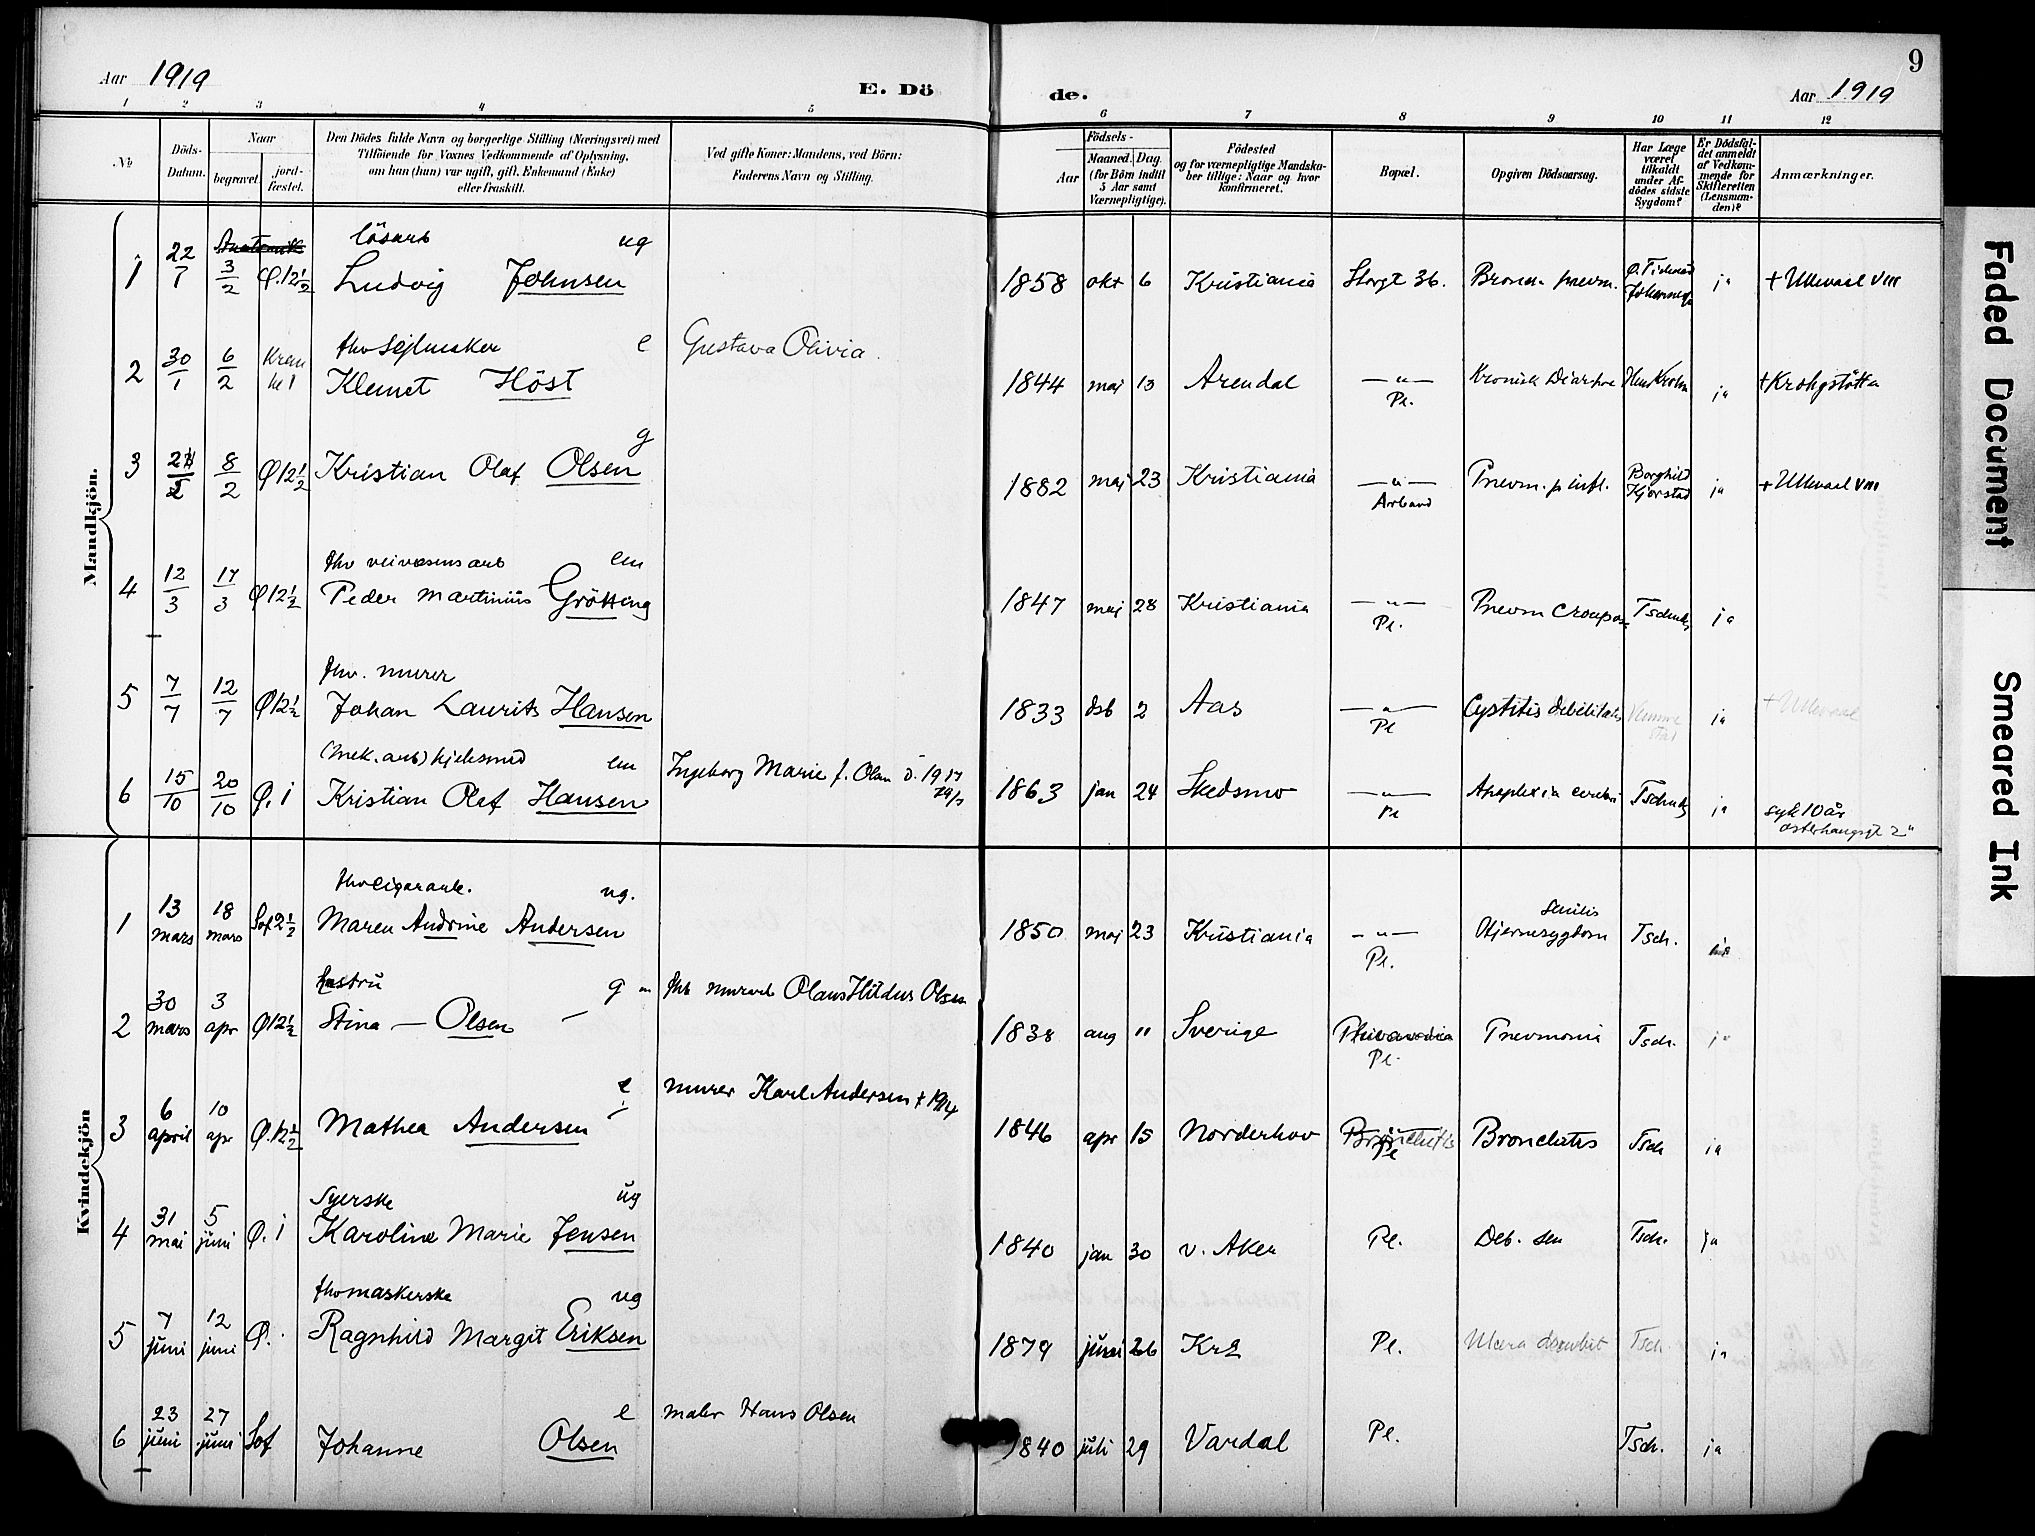 9
Aar 1919
E. Dö
de.
Aar 1919
1 2 3 4 5 6 7 8 9 10 11 12
№
Döds-
Datum.
Naar
begravet.
jord-
fæstet.
Den Dödes fulde Navn og borgerlige Stilling (Næringsvei) med
Tilföiende for Voxnes Vedkommende af Oplysning,
om han (hun) var ugift, gift, Enkemand (Enke)
eller fraskilt.
Ved gifte Koner: Mandens, ved Börn:
Faderens Navn og Stilling.
Födsels-
Aar
Maaned. Dag.
(for Börn indtil
5 Aar samt
Værnepligtige).
Födested
og for værnepligtige Mandska-
ber tillige: Naar og hvor
konfirmeret.
Bopæl.
Opgiven Dödsaarsag.
Har Læge
været
tilkaldt
under Af-
dödes sidste
Sygdom?
Er Dödsfal-
det anmeldt
af Vedkom-
mende for
Skifteretten
(Lensman-
den)?
Anmærkninger.
Mandkjön.
lösarb ug
1 22/7 3/2 Ø.12½ Ludvig Johnsen 1858 okt 6 Kristiania Storgt 36. Bronch. pnevm. ja + Ullevaal VIII
fhv Sejlmaker e Gustava Olivia
2 30/1 6/2 Krem kl 1 Klemet Höst 1844 maj 13 Arendal — " — Kronisk Diarhoe ja + Krohgstötten
Pl.
g
3 8/2 Ø12½ Kristian Olaf Olsen 1882 maj 23 Kristiania — " — Pnevm. p infl. Borghild Kjorstad ja + Ullevaal VIII
Arband
fhv veivæsensarb em
4 12/3 17/3 Ø12½ Peder Martinius Grötting 1847 maj 28 Kristiania — " — Pnevm Croupos Tschuds ja
Pl.
fhv. murer
5 7/7 12/7 Ø12½ Johan Laurits Hansen 1833 dsb 2 Aas — " — Cystitis debilitatis ja + Ullevaal
Pl
(mek. arb) kjelsmed em Ingeborg Marie f. Olsen d. 1917
6 15/10 20/10 Ø. 1 Kristian Olaf Hansen 1863 jan 24 Skedsmo — " — Apoplexia cerebri Tschuds ja syk 10 år
Pl
Kvindekjön
fhv cigararb. ug.
Senilis
1 13 mars 18 mars Sof 2½ Maren Andrine Andersen 1850 maj 23 Kristiania — " — Hjernesygdom Tsch.
Pl.
g fhv murarb Olaus Hildus Olsen
2 30 mars 3 apr Ø12½ Stina — Olsen — 1838 aug 11 Sverige Pnevmonia Tsch. ja
Pl.
e murer Karl Andersen + 1914
3 6 april 10 apr Ø.12½ Mathea Andersen 1846 apr 15 Norderhov Bronchitis Bronchitis Tsch ja
Pl
Syerske ug
4 31 mai 5 juni Ø. 1 Karoline Marie Jensen 1840 jan 30 v. Aker Pl. Deb. sen Tsch. ja
fhv maskerske ug
5 7 juni 12 juni Ø. Ragnhild Margit Eriksen 1879 juni 26 Kra Pl. Tsch. ja
e maler Hans Olsen
6 23 juni 27 juni Sof Johanne Olsen 1840 juli 29 Vardal Pl. Tsch. ja
Faded Document
Smeared Ink